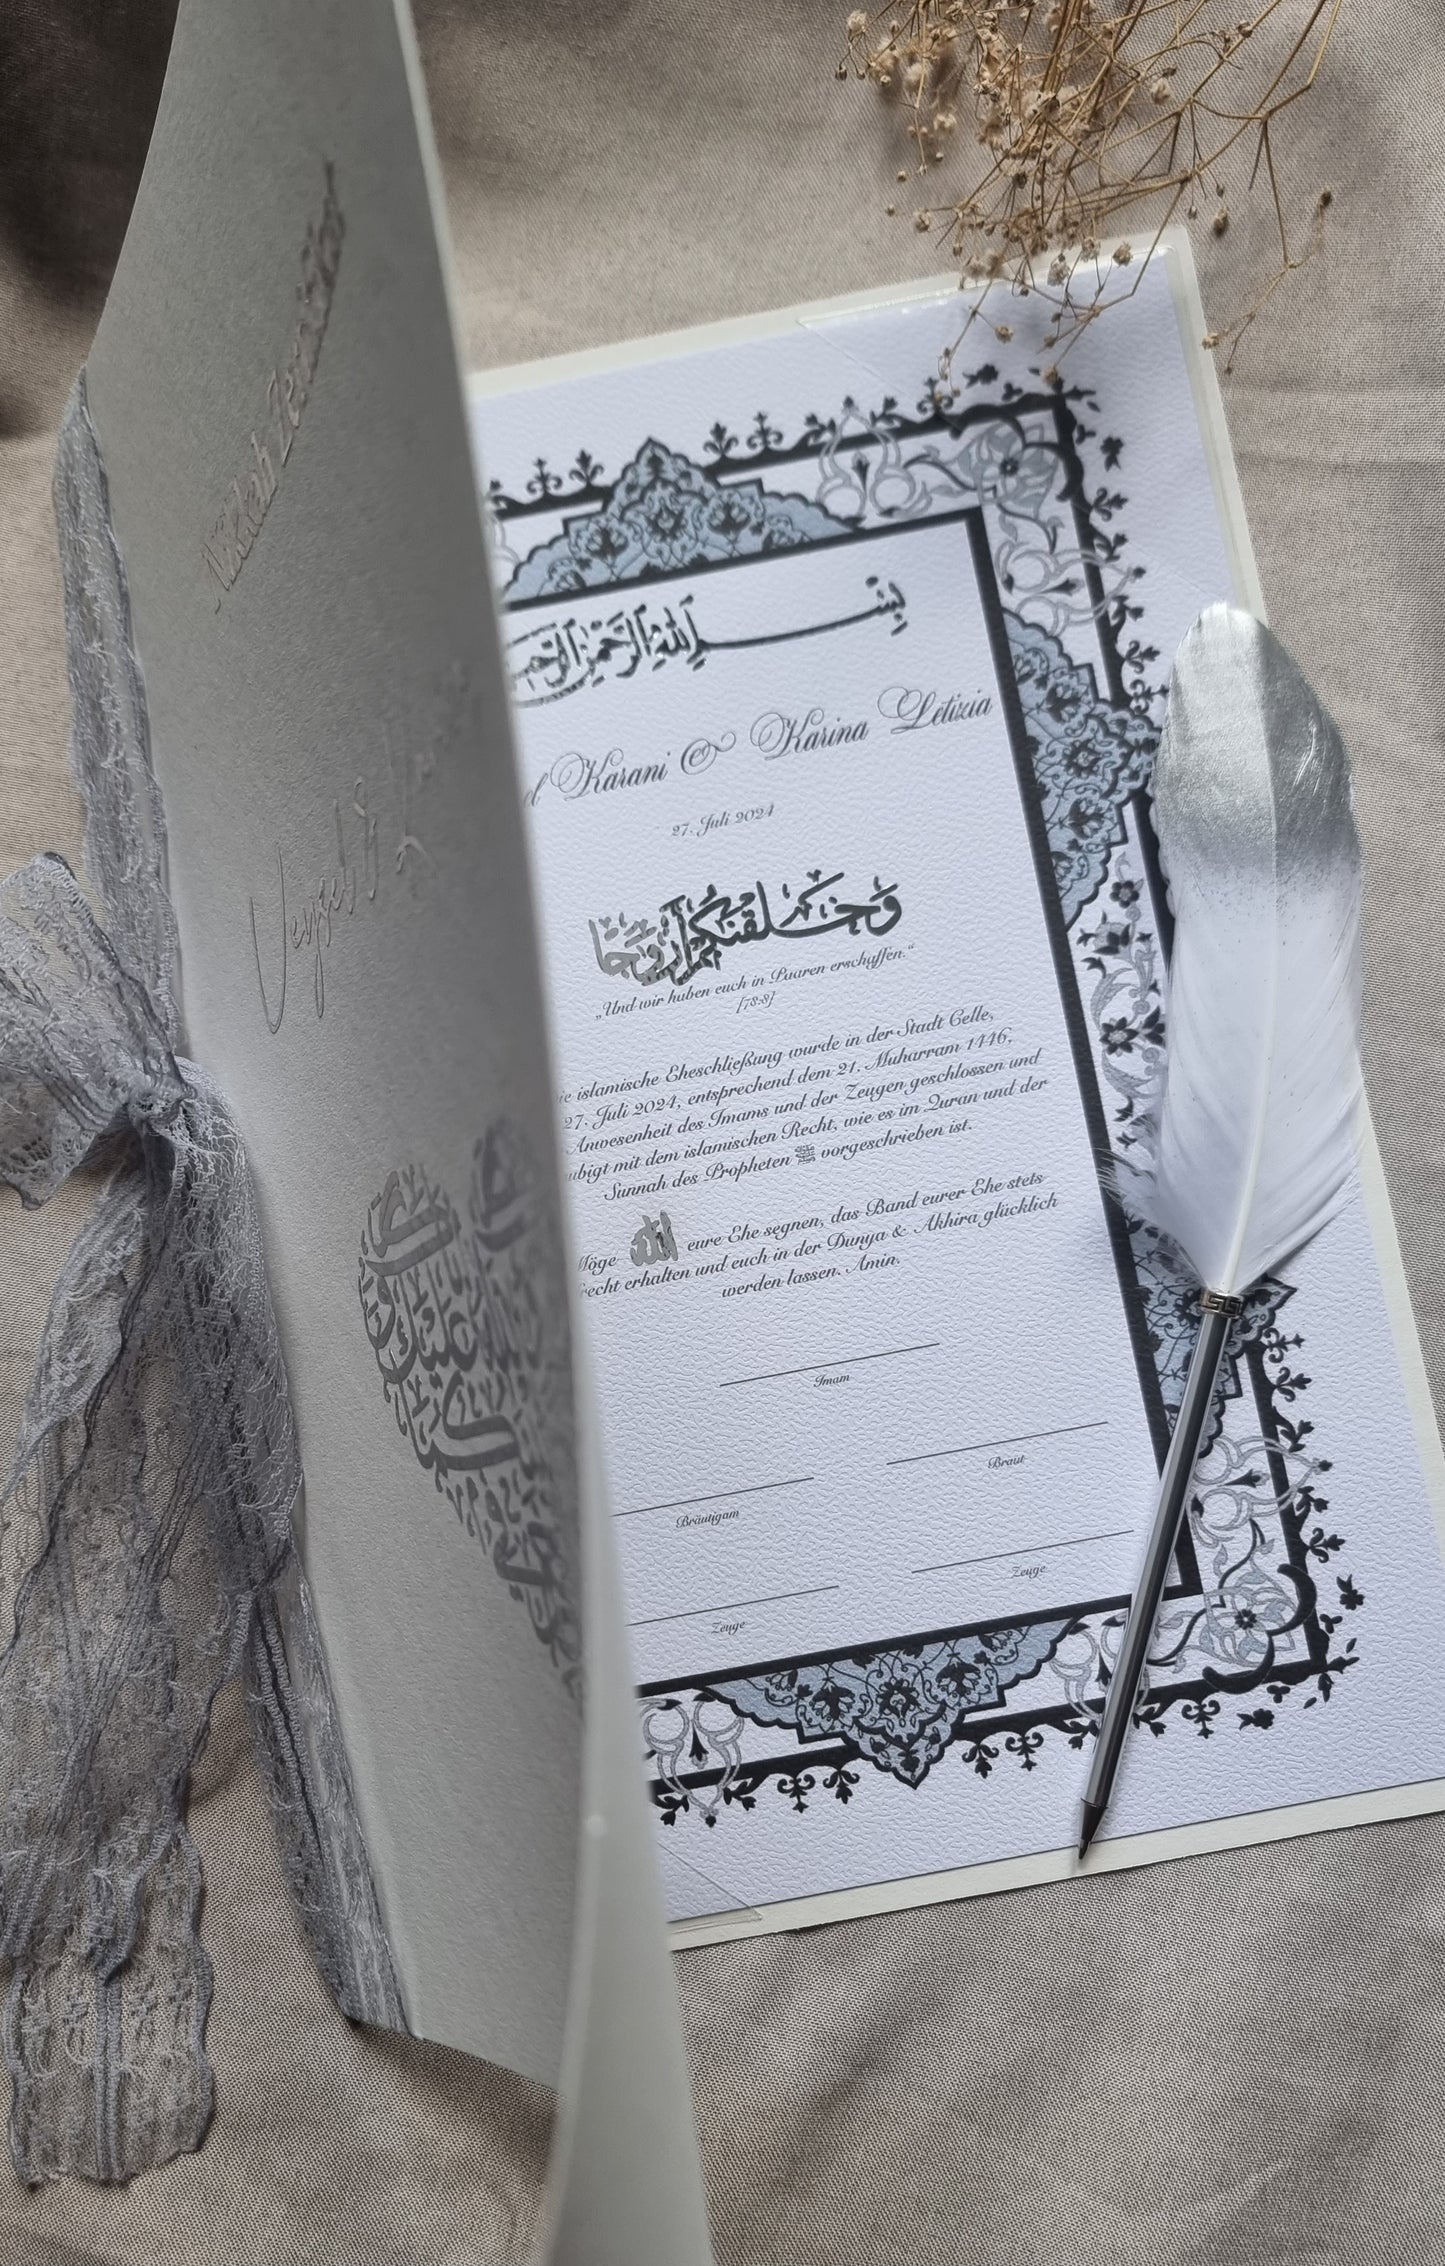 Nikah Zertifikat
Veysel &
بسم الله الرحمن الرحيم
Karani & Karina Letizia
27. Juli 2024
وخلقنكم أزوجا
„Und wir haben euch in Paaren erschaffen.“
[78:8]
islamische Eheschließung wurde in der Stadt Celle,
27. Juli 2024, entsprechend dem 21. Muharram 1446,
Anwesenheit des Imams und der Zeugen geschlossen und
mit dem islamischen Recht, wie es im Quran und der
Sunnah des Propheten ﷺ vorgeschrieben ist.
Möge الله eure Ehe segnen, das Band eurer Ehe stets
erhalten und euch in der Dunya & Akhira glücklich
werden lassen. Amin.
Imam
Bräutigam Braut
Zeuge Zeuge